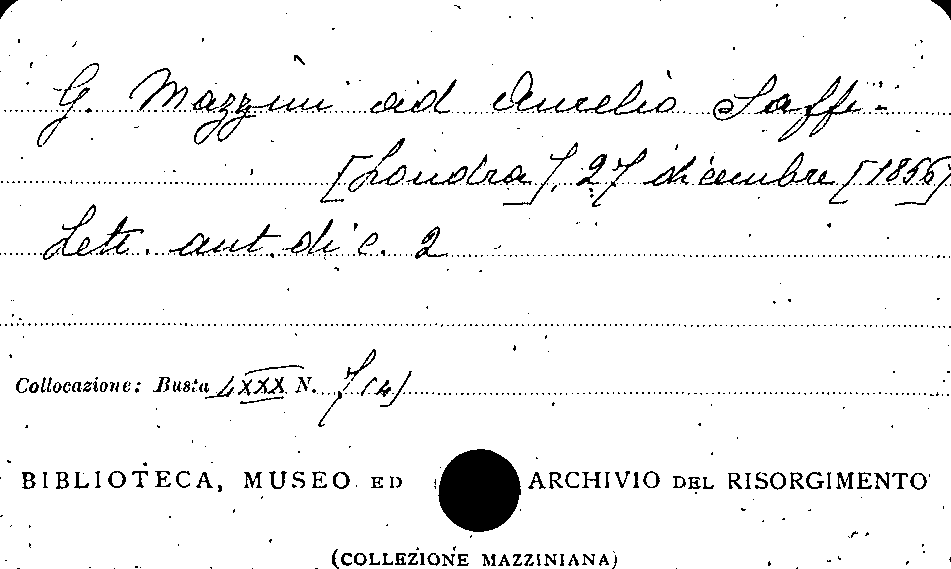 G. Mazzini ad Aurelio Saffi -
[Londra], 27 dicembre [1856]
Lett. aut. di c. 2
Collocazione: Busta LXXX N. 7 (4)
BIBLIOTECA, MUSEO ED ARCHIVIO DEL RISORGIMENTO
(COLLEZIONE MAZZINIANA)